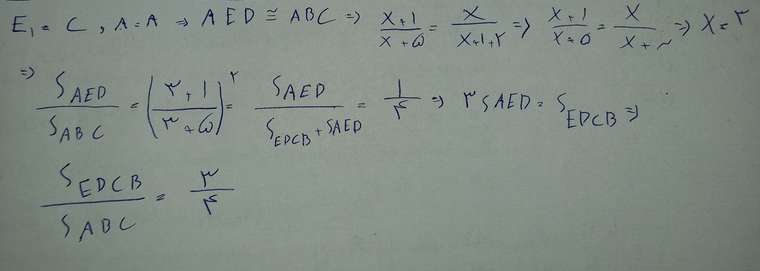 E₁ = C , A = A ⇒ AED ≅ ABC ⇒ x+1/x+۵ = x/x+1+۲ ⇒ x+1/x+۵ = x/x+۳ ⇒ x = ۳
⇒ S AED / S ABC = (۳+1/۳+۵)^۲ = S AED / S EDCB + S AED = 1/۴ ⇒ ۳ S AED = S EDCB ⇒
S EDCB / S ABC = ۳/۴